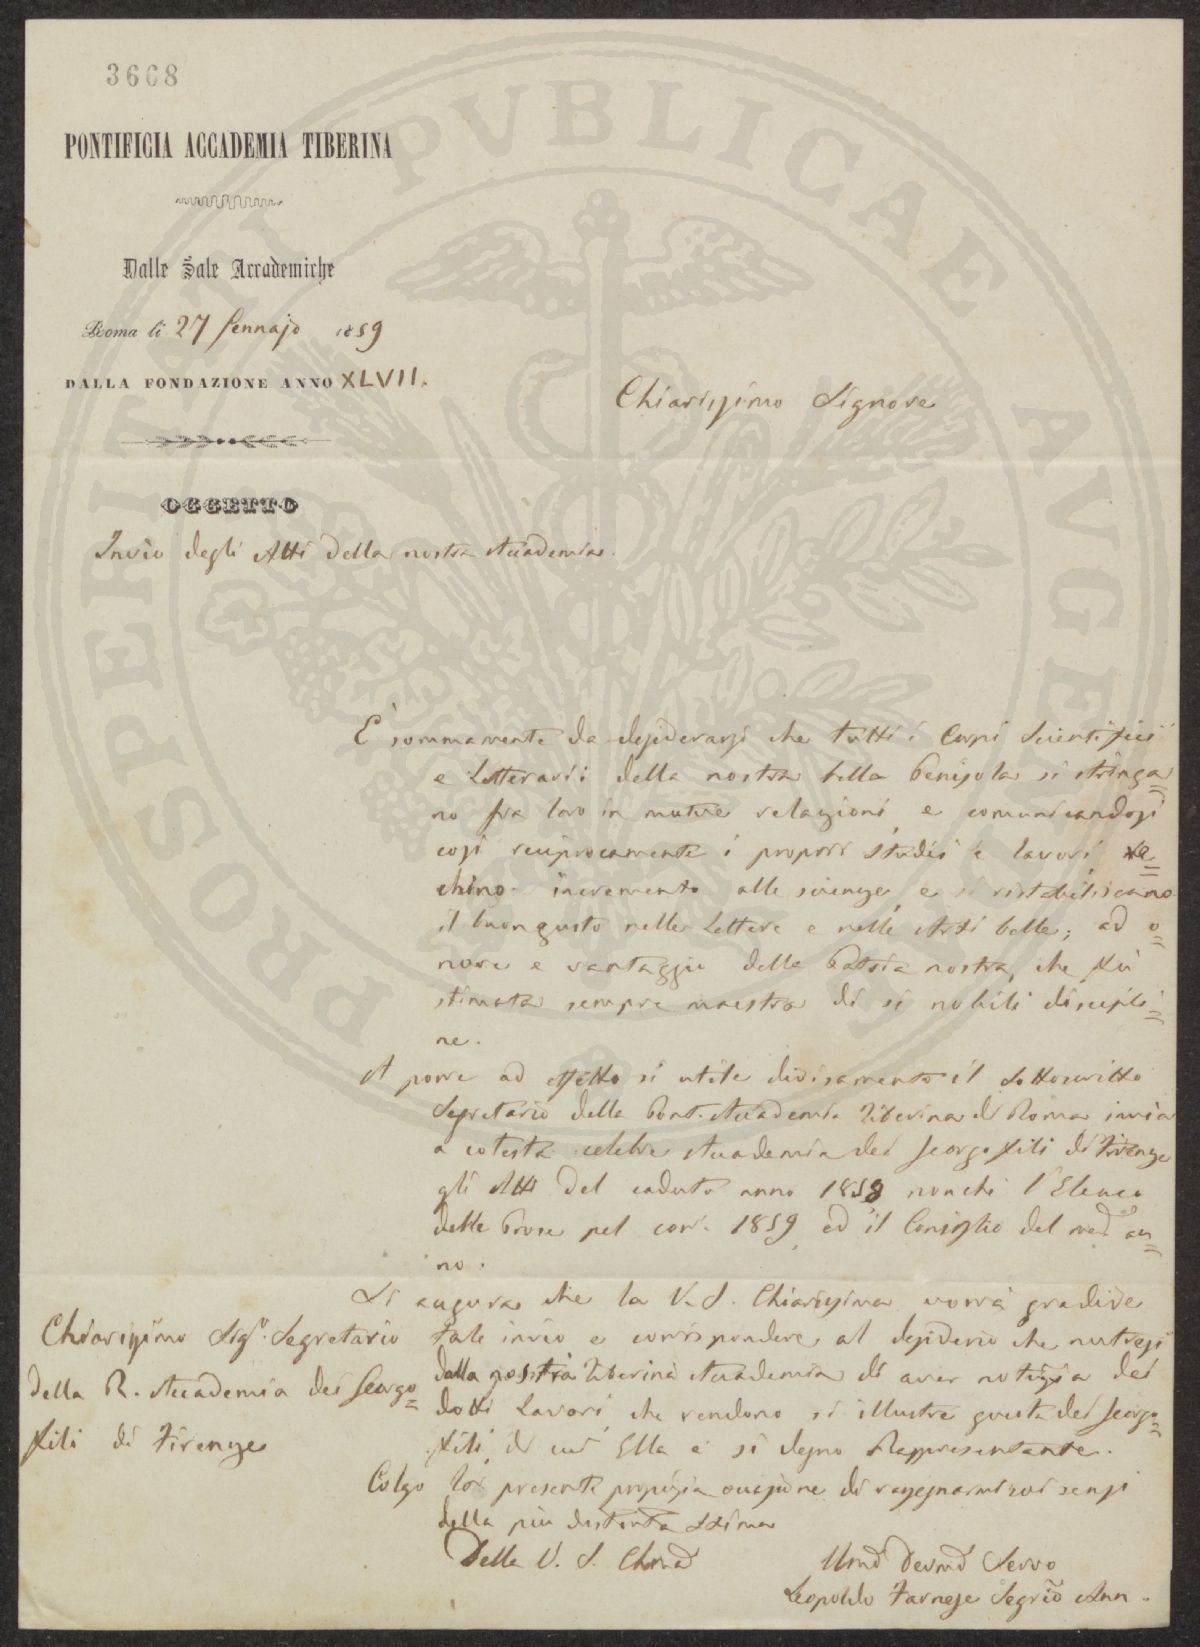 3608
PONTIFICIA ACCADEMIA TIBERINA
Dalle Sale Accademiche
Roma li 27 Gennajo 1859
DALLA FONDAZIONE ANNO XLVII.
Chiarissimo Signore
OGGETTO
Invio degli Atti della nostra Accademia.
È sommamente da desiderarsi che tutti i Corpi Scientifici
e Letterarii della nostra bella Penisola si stringa=
no fra loro in mutue relazioni, e comunicandosi
così reciprocamente i proprii studii e lavori, re=
chino incremento alle scienze, e si ristabiliscano
il buon gusto nelle Lettere e nelle Arti belle; ad o=
nore e vantaggio della Patria nostra, che fù
stimata sempre maestra di sì nobili discipli=
ne.
A porre ad effetto sì utile divisamento il Sottoscritto
Segretario della Pont. Accademia Tiberina di Roma invia
a cotesta celebre Accademia dei Georgofili di Firenze
gli Atti del caduto anno 1858 nonché l'Elenco
delle Prose pel corr. 1859, ed il Consiglio del med. an=
no.
Si augura che la V. S. Chiarissima vorrà gradire
tale invio e corrispondere al desiderio che nutresi
dalla nostra Tiberina Accademia di aver notizia dei
dotti Lavori, che rendono sì illustre questa dei Georgo=
fili, di cui Ella è sì degno Rappresentante.
Colgo la presente propizia occasione di rassegnarmi coi sensi
della più distinta stima
Della V. S. Chma
Umo Devmo Servo
Leopoldo Farnese Segrio Ann.
Chiarissimo Sigr. Segretario
della R. Accademia dei Georgo=
fili di Firenze
PROSPERITATI PVBLICAE AVGENDAE